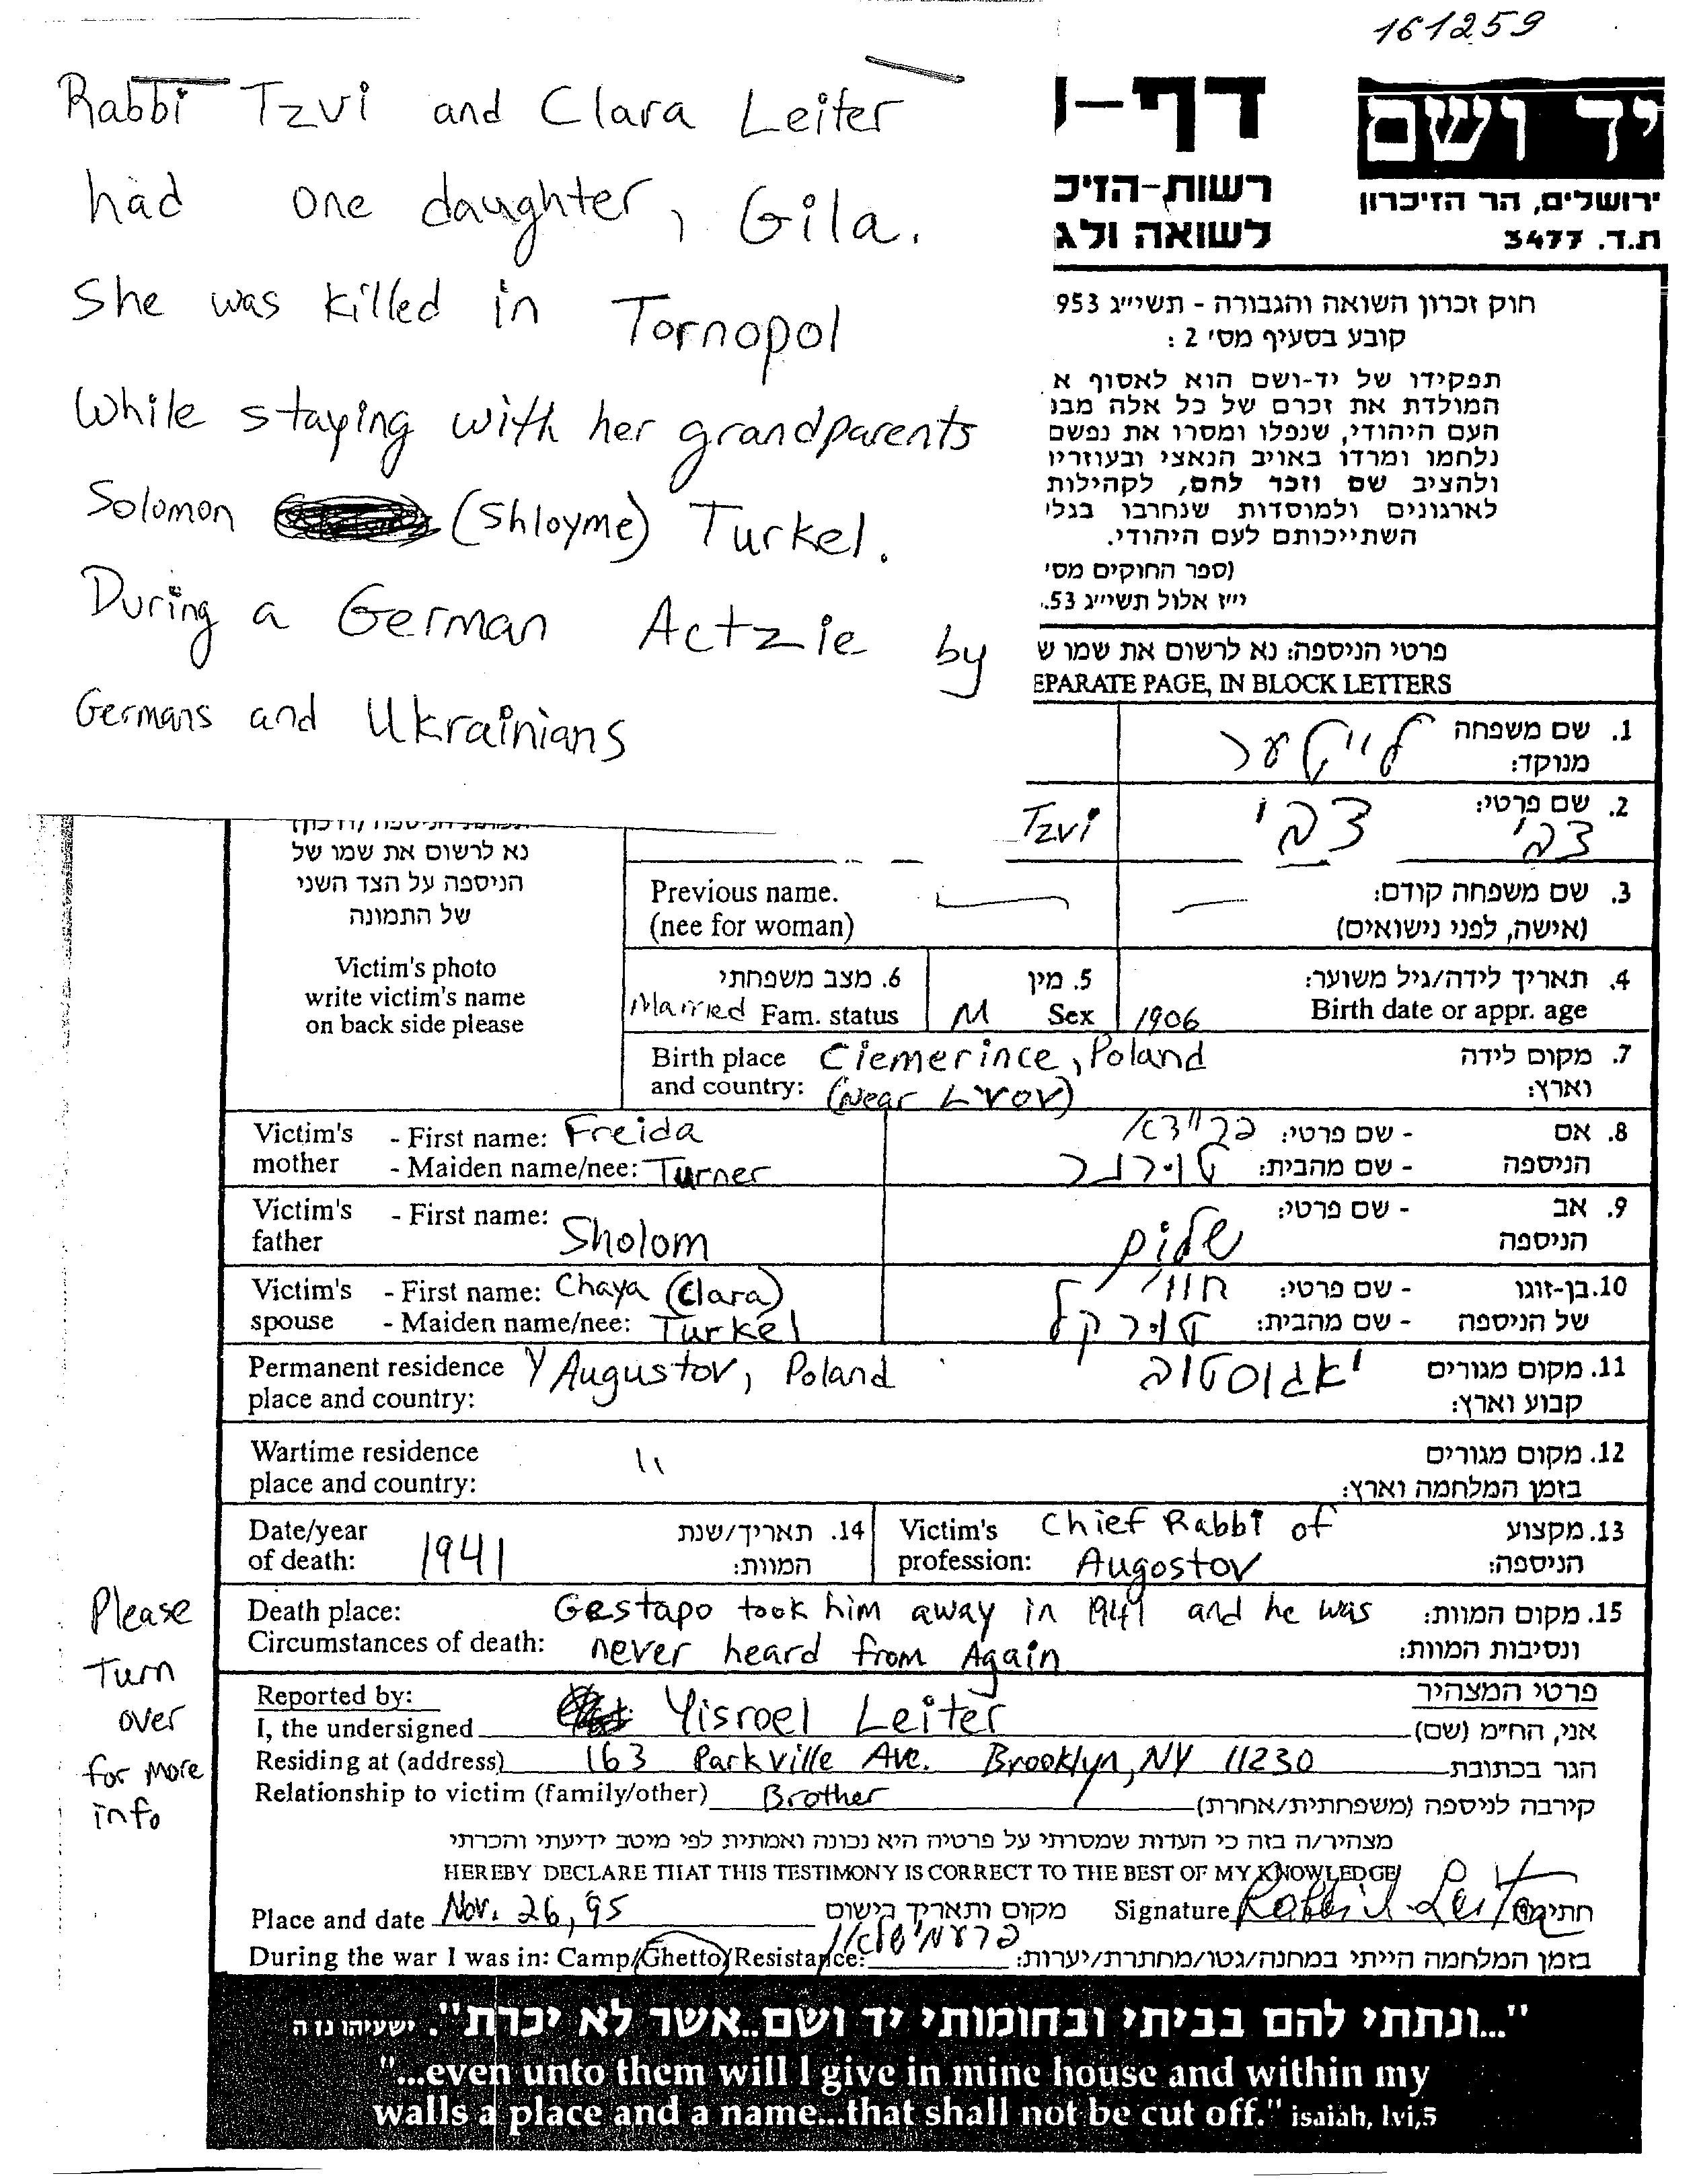 161259
Rabbi Tzvi and Clara Leiter
had one daughter, Gila.
She was killed in Tornopol
While staying with her grandparents
Solomon (Shloyme) Turkel.
During a German Actzie by
Germans and Ukrainians
יד ושם
ירושלים, הר הזיכרון
ת.ד. 3477
דף-
רשות-הזיכ
לשואה ולג
חוק זכרון השואה והגבורה - תשי״ג 953
קובע בסעיף מס׳ 2 :
תפקידו של יד-ושם הוא לאסוף א
המולדת את זכרם של כל אלה מבנ
העם היהודי, שנפלו ומסרו את נפשם
נלחמו ומרדו באויב הנאצי ובעוזריו
ולהציב שם וזכר להם, לקהילות
לארגונים ולמוסדות שנחרבו בגלי
השתייכותם לעם היהודי.
(ספר החוקים מס׳
י״ז אלול תשי״ג 53.
פרטי הניספה: נא לרשום את שמו ש
EPARATE PAGE, IN BLOCK LETTERS
1. שם משפחה
מנוקד: לייטער
2. שם פרטי: צבי צבי Tzvi
נא לרשום את שמו של
הניספה על הצד השני
של התמונה
Victim's photo
write victim's name
on back side please
Previous name. 3. שם משפחה קודם:
(nee for woman) (אישה, לפני נישואים)
4. תאריך לידה/גיל משוער:
Birth date or appr. age 1906
5. מין
Sex M
6. מצב משפחתי
Married Fam. status
Birth place Ciemerince, Poland 7. מקום לידה
and country: (Near Lvov) וארץ:
Victim's - First name: Freida 8. אם - שם פרטי: פריידא
mother - Maiden name/nee: Turner הניספה - שם מהבית: טורנר
Victim's - First name: Sholom 9. אב - שם פרטי: שלום
father הניספה
Victim's - First name: Chaya (Clara) 10. בן-זוגו - שם פרטי:
spouse - Maiden name/nee: Turkel של הניספה - שם מהבית: טורקל
Permanent residence Augustov, Poland 11. מקום מגורים יאגוסטוב
place and country: קבוע וארץ:
Wartime residence " 12. מקום מגורים
place and country: בזמן המלחמה וארץ:
Date/year 1941 14. תאריך/שנת
of death: המוות:
Victim's Chief Rabbi of 13. מקצוע
profession: Augostov הניספה:
Death place: Gestapo took him away in 1941 and he was 15. מקום המוות:
Circumstances of death: never heard from Again ונסיבות המוות:
Please
Turn
over
for More
info
Reported by: פרטי המצהיר
I, the undersigned Yisroel Leiter אני, הח״מ (שם)
Residing at (address) 163 Parkville Ave. Brooklyn, NY 11230 הגר בכתובת
Relationship to victim (family/other) Brother קירבה לניספה (משפחתית/אחרת)
מצהיר/ה בזה כי העדות שמסרתי על פרטיה היא נכונה ואמתית לפי מיטב ידיעתי והכרתי
HEREBY DECLARE THAT THIS TESTIMONY IS CORRECT TO THE BEST OF MY KNOWLEDGE
Place and date Nov. 26, 95 מקום ותאריך רישום Signature Rabbi Leiter חתימה
During the war I was in: Camp/Ghetto/Resistance: בזמן המלחמה הייתי במחנה/גטו/מחתרת/יערות:
"...ונתתי להם בביתי ובחומותי יד ושם...אשר לא יכרת". ישעיהו נו ה
"...even unto them will I give in mine house and within my
walls a place and a name...that shall not be cut off." isaiah, lvi,5